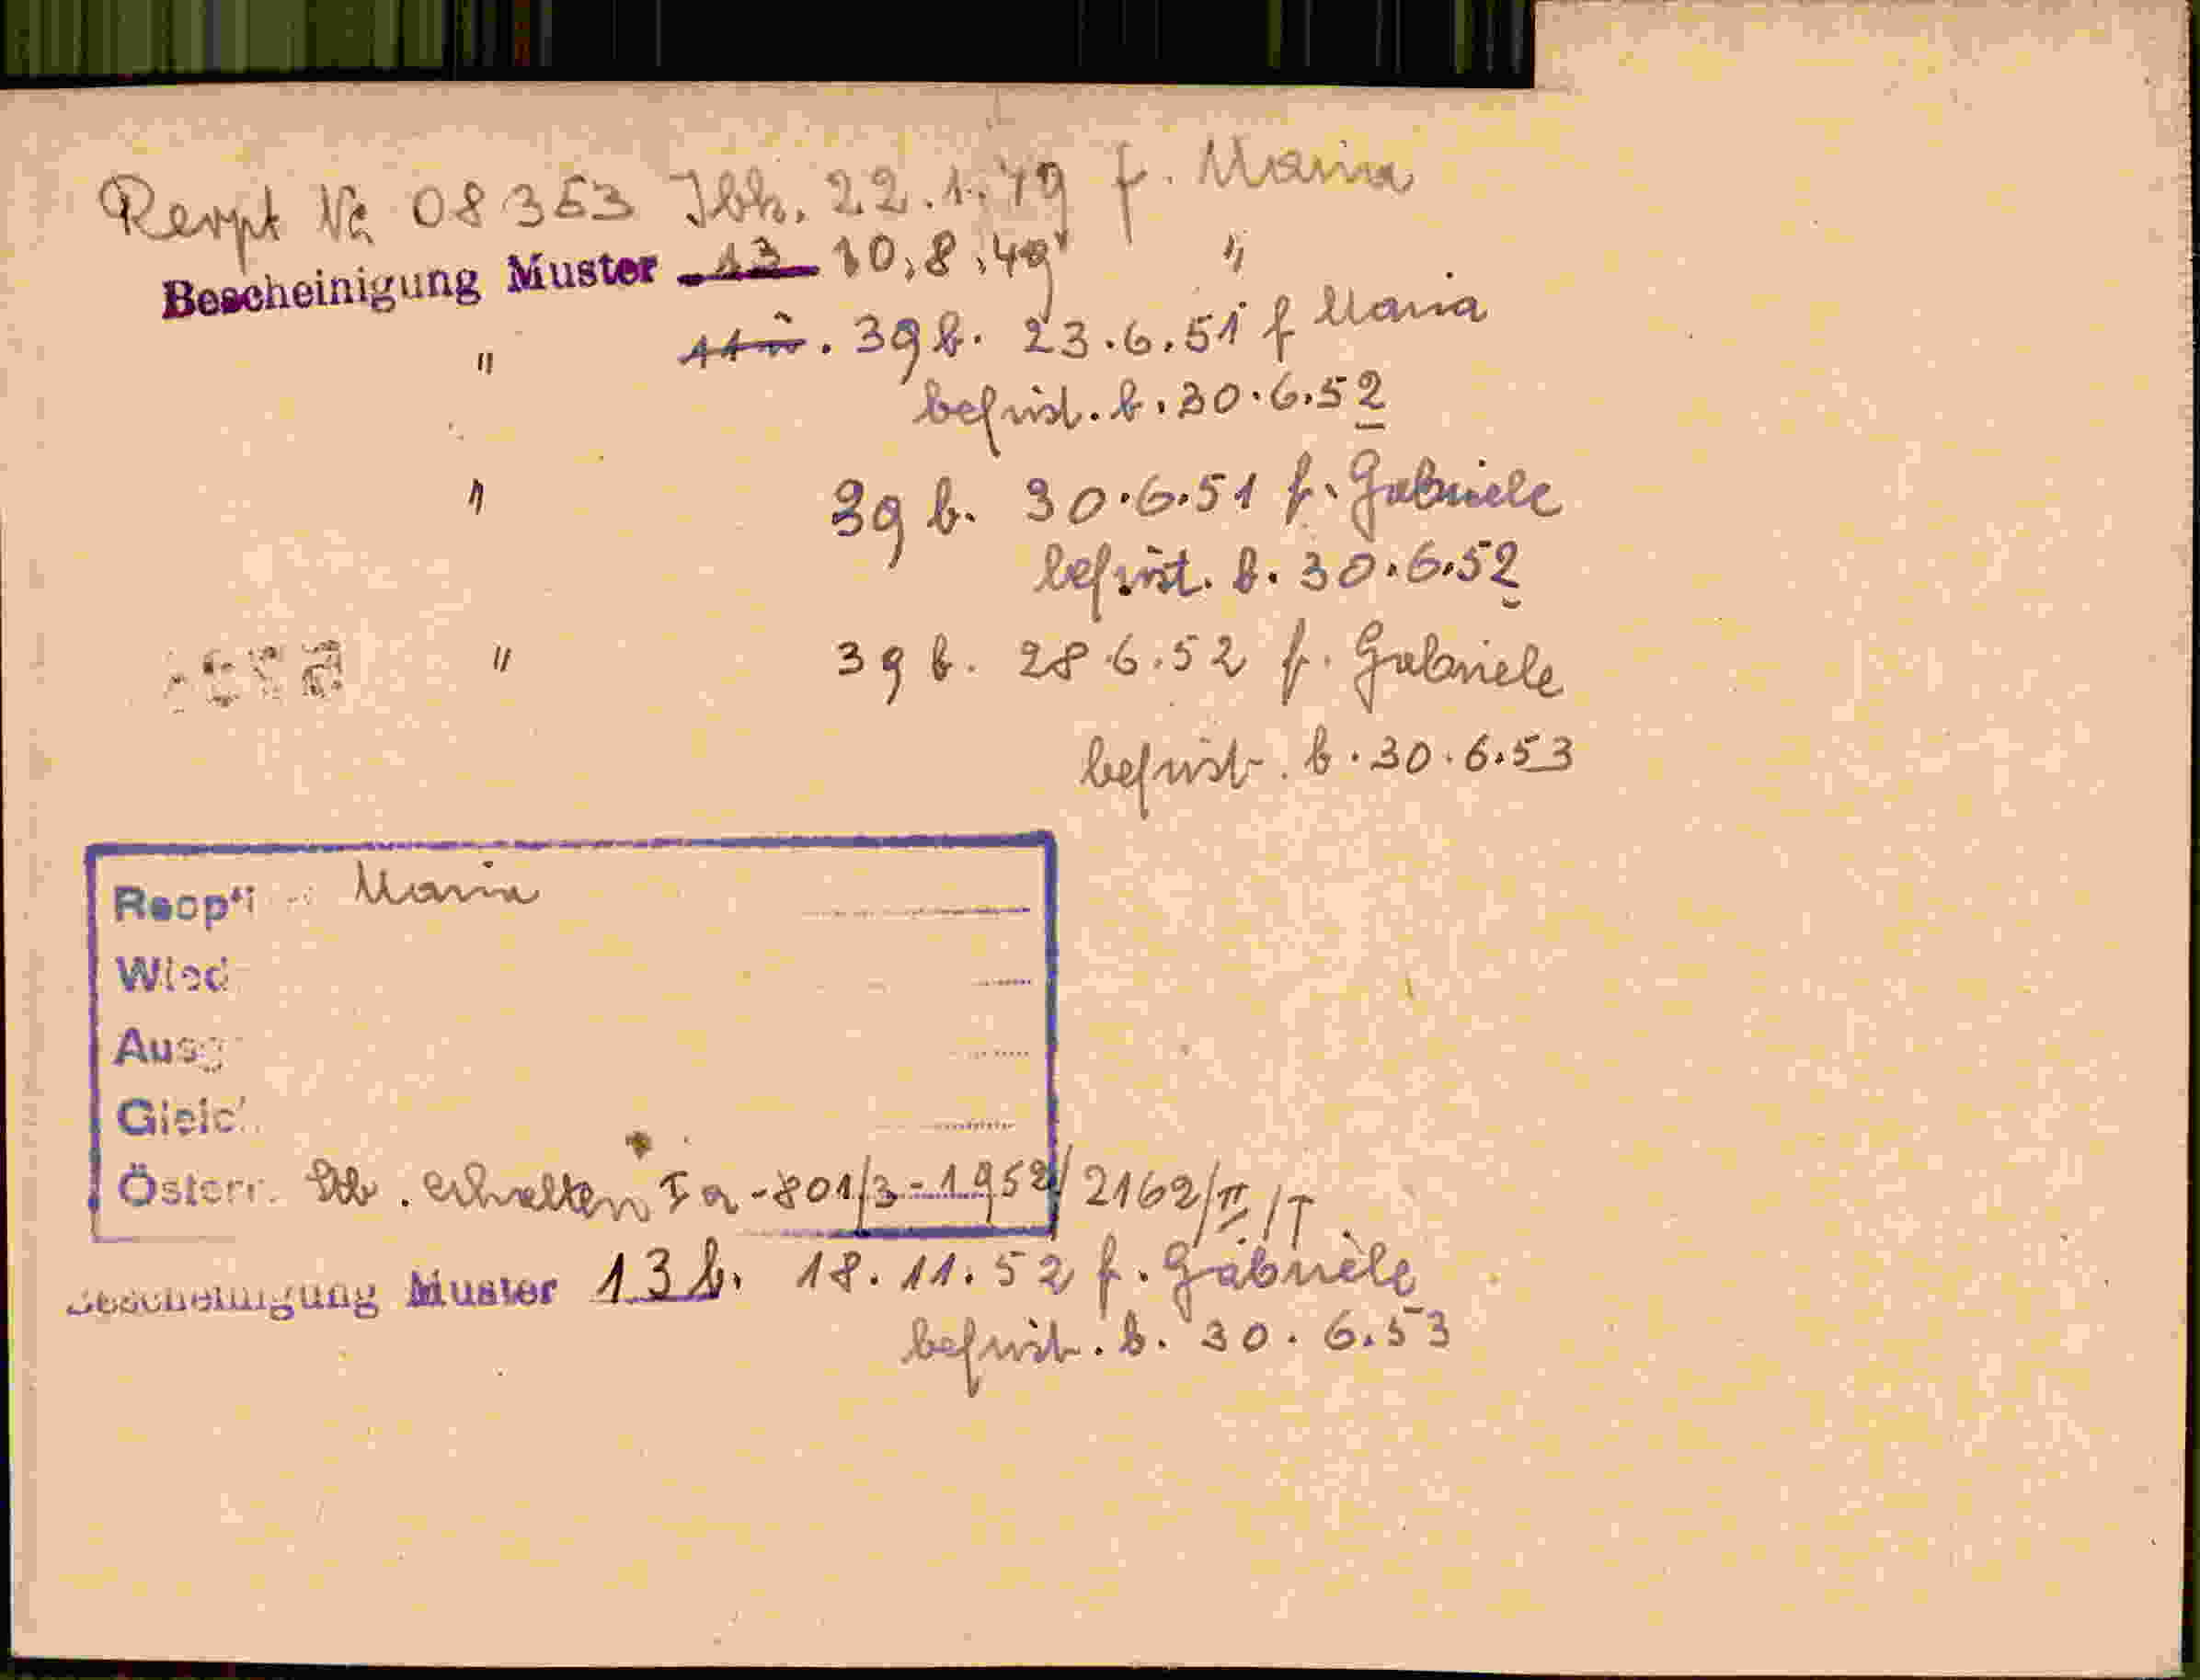 Rempt Nr 08353 Jbk. 22.1.49 f. Maria
Bescheinigung Muster 13 10.8.49 "
" 39 b. 23.6.51 f Maria
befrist. b. 30.6.52
" 39 b. 30.6.51 f. Gabriele
befrist. b. 30.6.52
" 39 b. 28.6.52 f. Gabriele
befrist. b. 30.6.53
Reopti Maria
Wied
Ausg
Gleich
Österr. Stb. erhalten Ia-801/3-1952/2162/II/T
Bescheinigung Muster 13 b. 18.11.52 f. Gabriele
befrist. b. 30.6.53